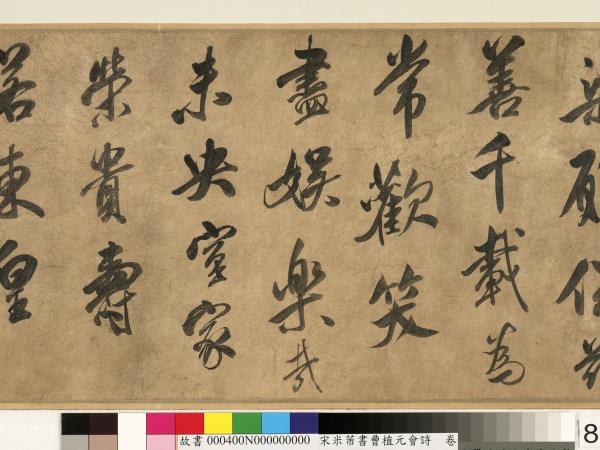 梁願保茲
善千載為
常歡笑
盡娛樂哉
未央室家
榮貴壽
若東皇
故書 000400N000000000 宋米芾書曹植元會詩 卷
8